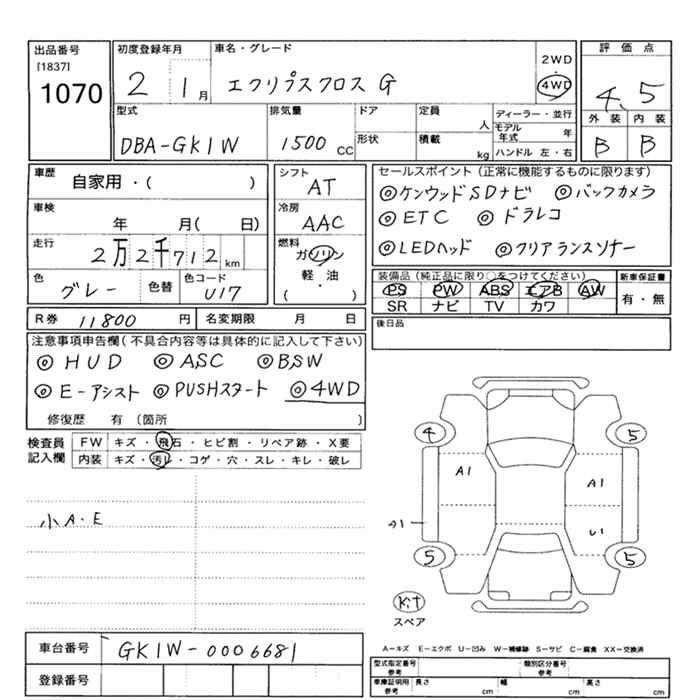 出品番号 初度登録年月 車名・グレード 評価点
[1837]
1070 2 1月 エクリプスクロス G 2WD 4WD 4.5
型式 排気量 ドア 定員 人 ディーラー・並行 外装 内装
形状 積載 kg モデル年式 年
DBA-GK1W 1500 CC ハンドル 左・右 B B
車歴 自家用・( ) シフト AT セールスポイント(正常に機能するものに限ります)
◎ケンウッドSDナビ ◎バックカメラ
車検 年 月( 日) 冷房 AAC ◎ETC ◎ドラレコ
走行 2万2千712km 燃料 ガソリン 軽・油 ( ) ◎LEDヘッド ◎クリアランスソナー
色 グレー 色替 色コード U17
装備品(純正品に限り○をつけてください) 新車保証書
PS PW ABS エアB AW 有・無
SR ナビ TV カワ
R券 11800 円 名変期限 月 日 後日品
注意事項申告欄(不具合内容等は具体的に記入して下さい)
◎HUD ◎ASC ◎BSW
◎E-アシスト ◎PUSHスタート ◎4WD
修復歴 有 (箇所 )
検査員記入欄 FW キズ・飛石・ヒビ割・リペア跡・X要
内装 キズ・汚レ・コゲ・穴・スレ・キレ・破レ
4 5
A1 A1
小A・E
A1 U1
5 5
Kit
スペア
車台番号 GK1W-0006681
登録番号
A-キズ E-エクボ U-凹み W-補修跡 S-サビ C-腐食 XX-交換済
型式指定番号 参考 類別区分番号 参考
車庫証明用 参考 長さ cm 幅 cm 高さ cm